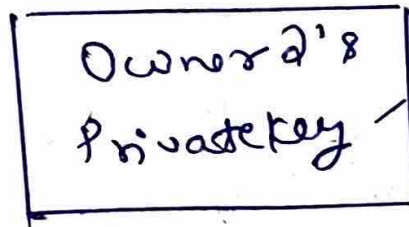 Owner 2's
Private key